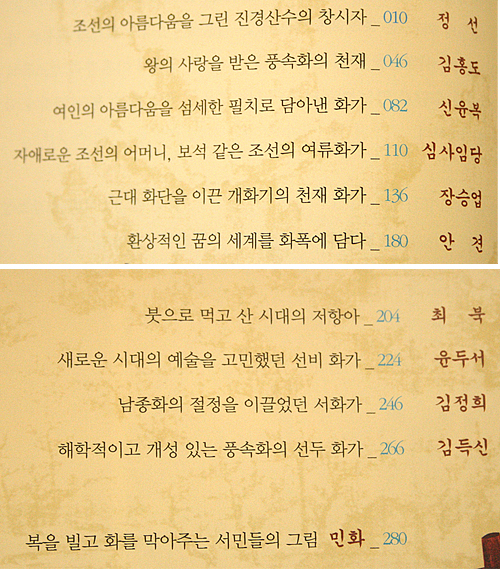 조선의 아름다움을 그린 진경산수의 창시자 _010 정 선
왕의 사랑을 받은 풍속화의 천재 _046 김홍도
여인의 아름다움을 섬세한 필치로 담아낸 화가 _082 신윤복
자애로운 조선의 어머니, 보석 같은 조선의 여류화가 _110 심사임당
근대 화단을 이끈 개화기의 천재 화가 _136 장승업
환상적인 꿈의 세계를 화폭에 담다 _180 안 견
붓으로 먹고 산 시대의 저항아 _204 최 북
새로운 시대의 예술을 고민했던 선비 화가 _224 윤두서
남종화의 절정을 이끌었던 서화가 _246 김정희
해학적이고 개성 있는 풍속화의 선두 화가 _266 김득신
복을 빌고 화를 막아주는 서민들의 그림 민화 _280